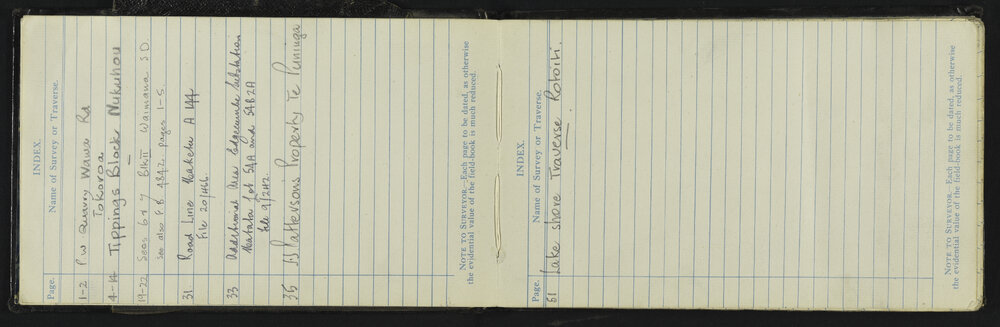 INDEX.
Page. Name of Survey or Traverse.
1-2 P.W Quarry Wawa Rd
Tokoroa
4-14 Tippings Block Nukuhou
19-22 Secs 6 & 7 Blk II Waimana S.D.
See also F.B 4842 pages 1-5.
31 Road Line Maketu A 144
File 20/466.
33 Additional Area Edgecumbe Substation
Matata Lot 5AA and 5AB2A
file 9/242.
35 Pattersons Property Te Puninga
NOTE TO SURVEYOR.—Each page to be dated, as otherwise
the evidential value of the field-book is much reduced.
INDEX.
Page. Name of Survey or Traverse.
51 Lake shore Traverse Rotoiti.
NOTE TO SURVEYOR.—Each page to be dated, as otherwise
the evidential value of the field-book is much reduced.